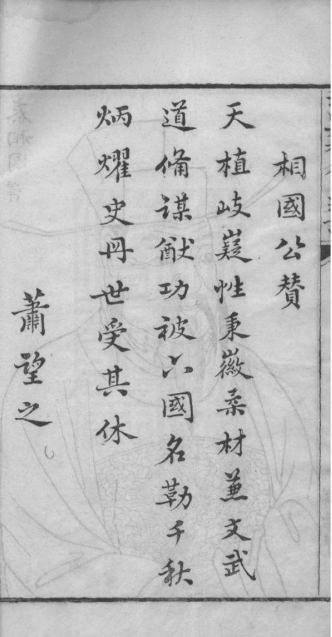 相國公贊
天植岐嶷性秉徽柔材兼文武
道備謀猷功被六國名勒千秋
炳燿史冊世受其休
蕭望之